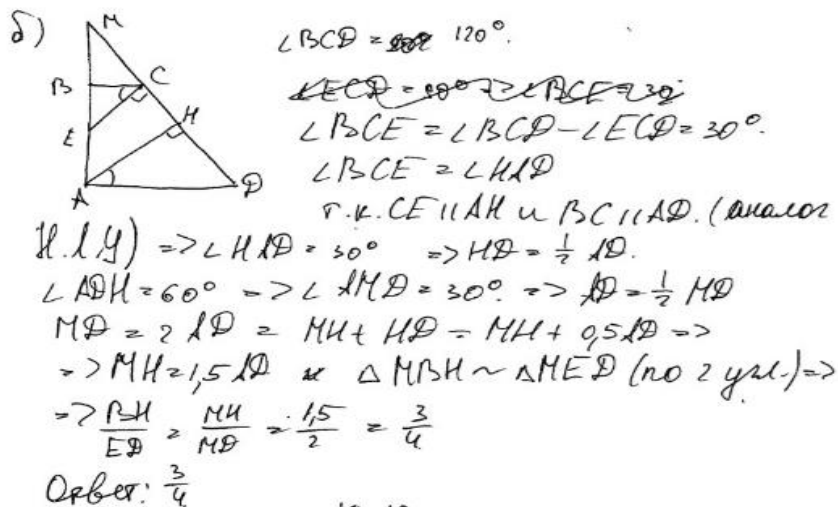 б)
M
B
C
E
H
A
D
∠BCD = 120°.
∠ECD = 90° => ∠BCE = 30°
∠BCE = ∠BCD - ∠ECD = 30°.
∠BCE = ∠HAD
т.к. CE || AH и BC || AD. (аналог
Н.Л.У) => ∠HAD = 30° => HD = 1/2 AD.
∠ADH = 60° => ∠AMD = 30° => AD = 1/2 MD
MD = 2AD = MH + HD = MH + 0,5AD =>
=> MH = 1,5AD и △MBH ~ △MED (по 2 угл.) =>
=> BH/ED = MH/MD = 1,5/2 = 3/4
Ответ: 3/4